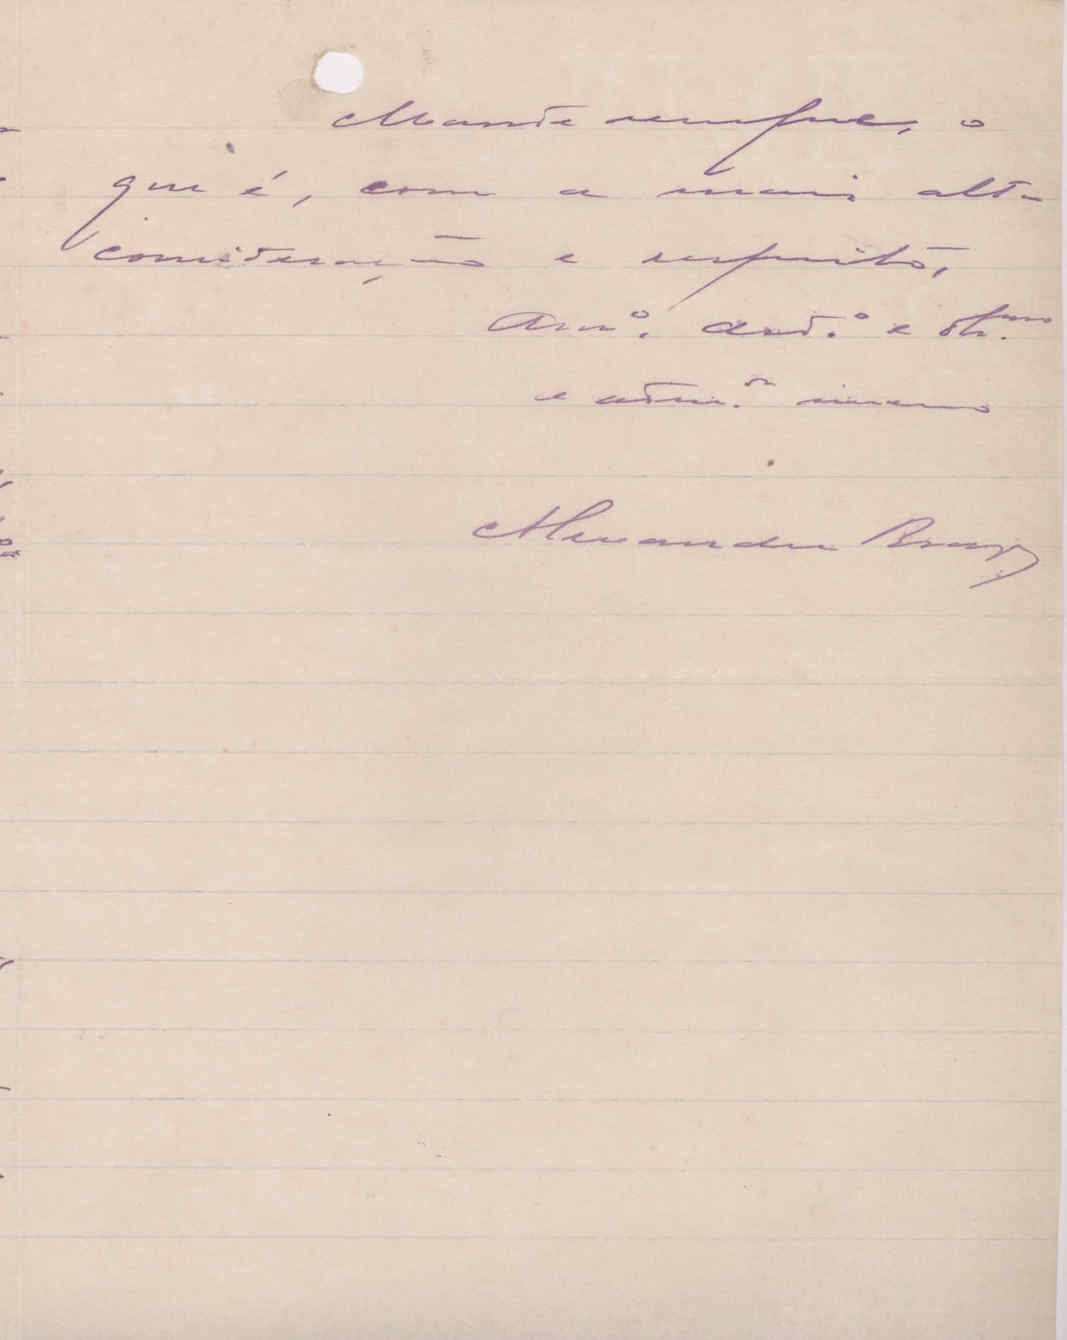 Mande sempre, o
que é, com a mais alta
consideração e respeito,
Am.º cred.º e obr.mo
e adm.or sincero
Alexandre Braga